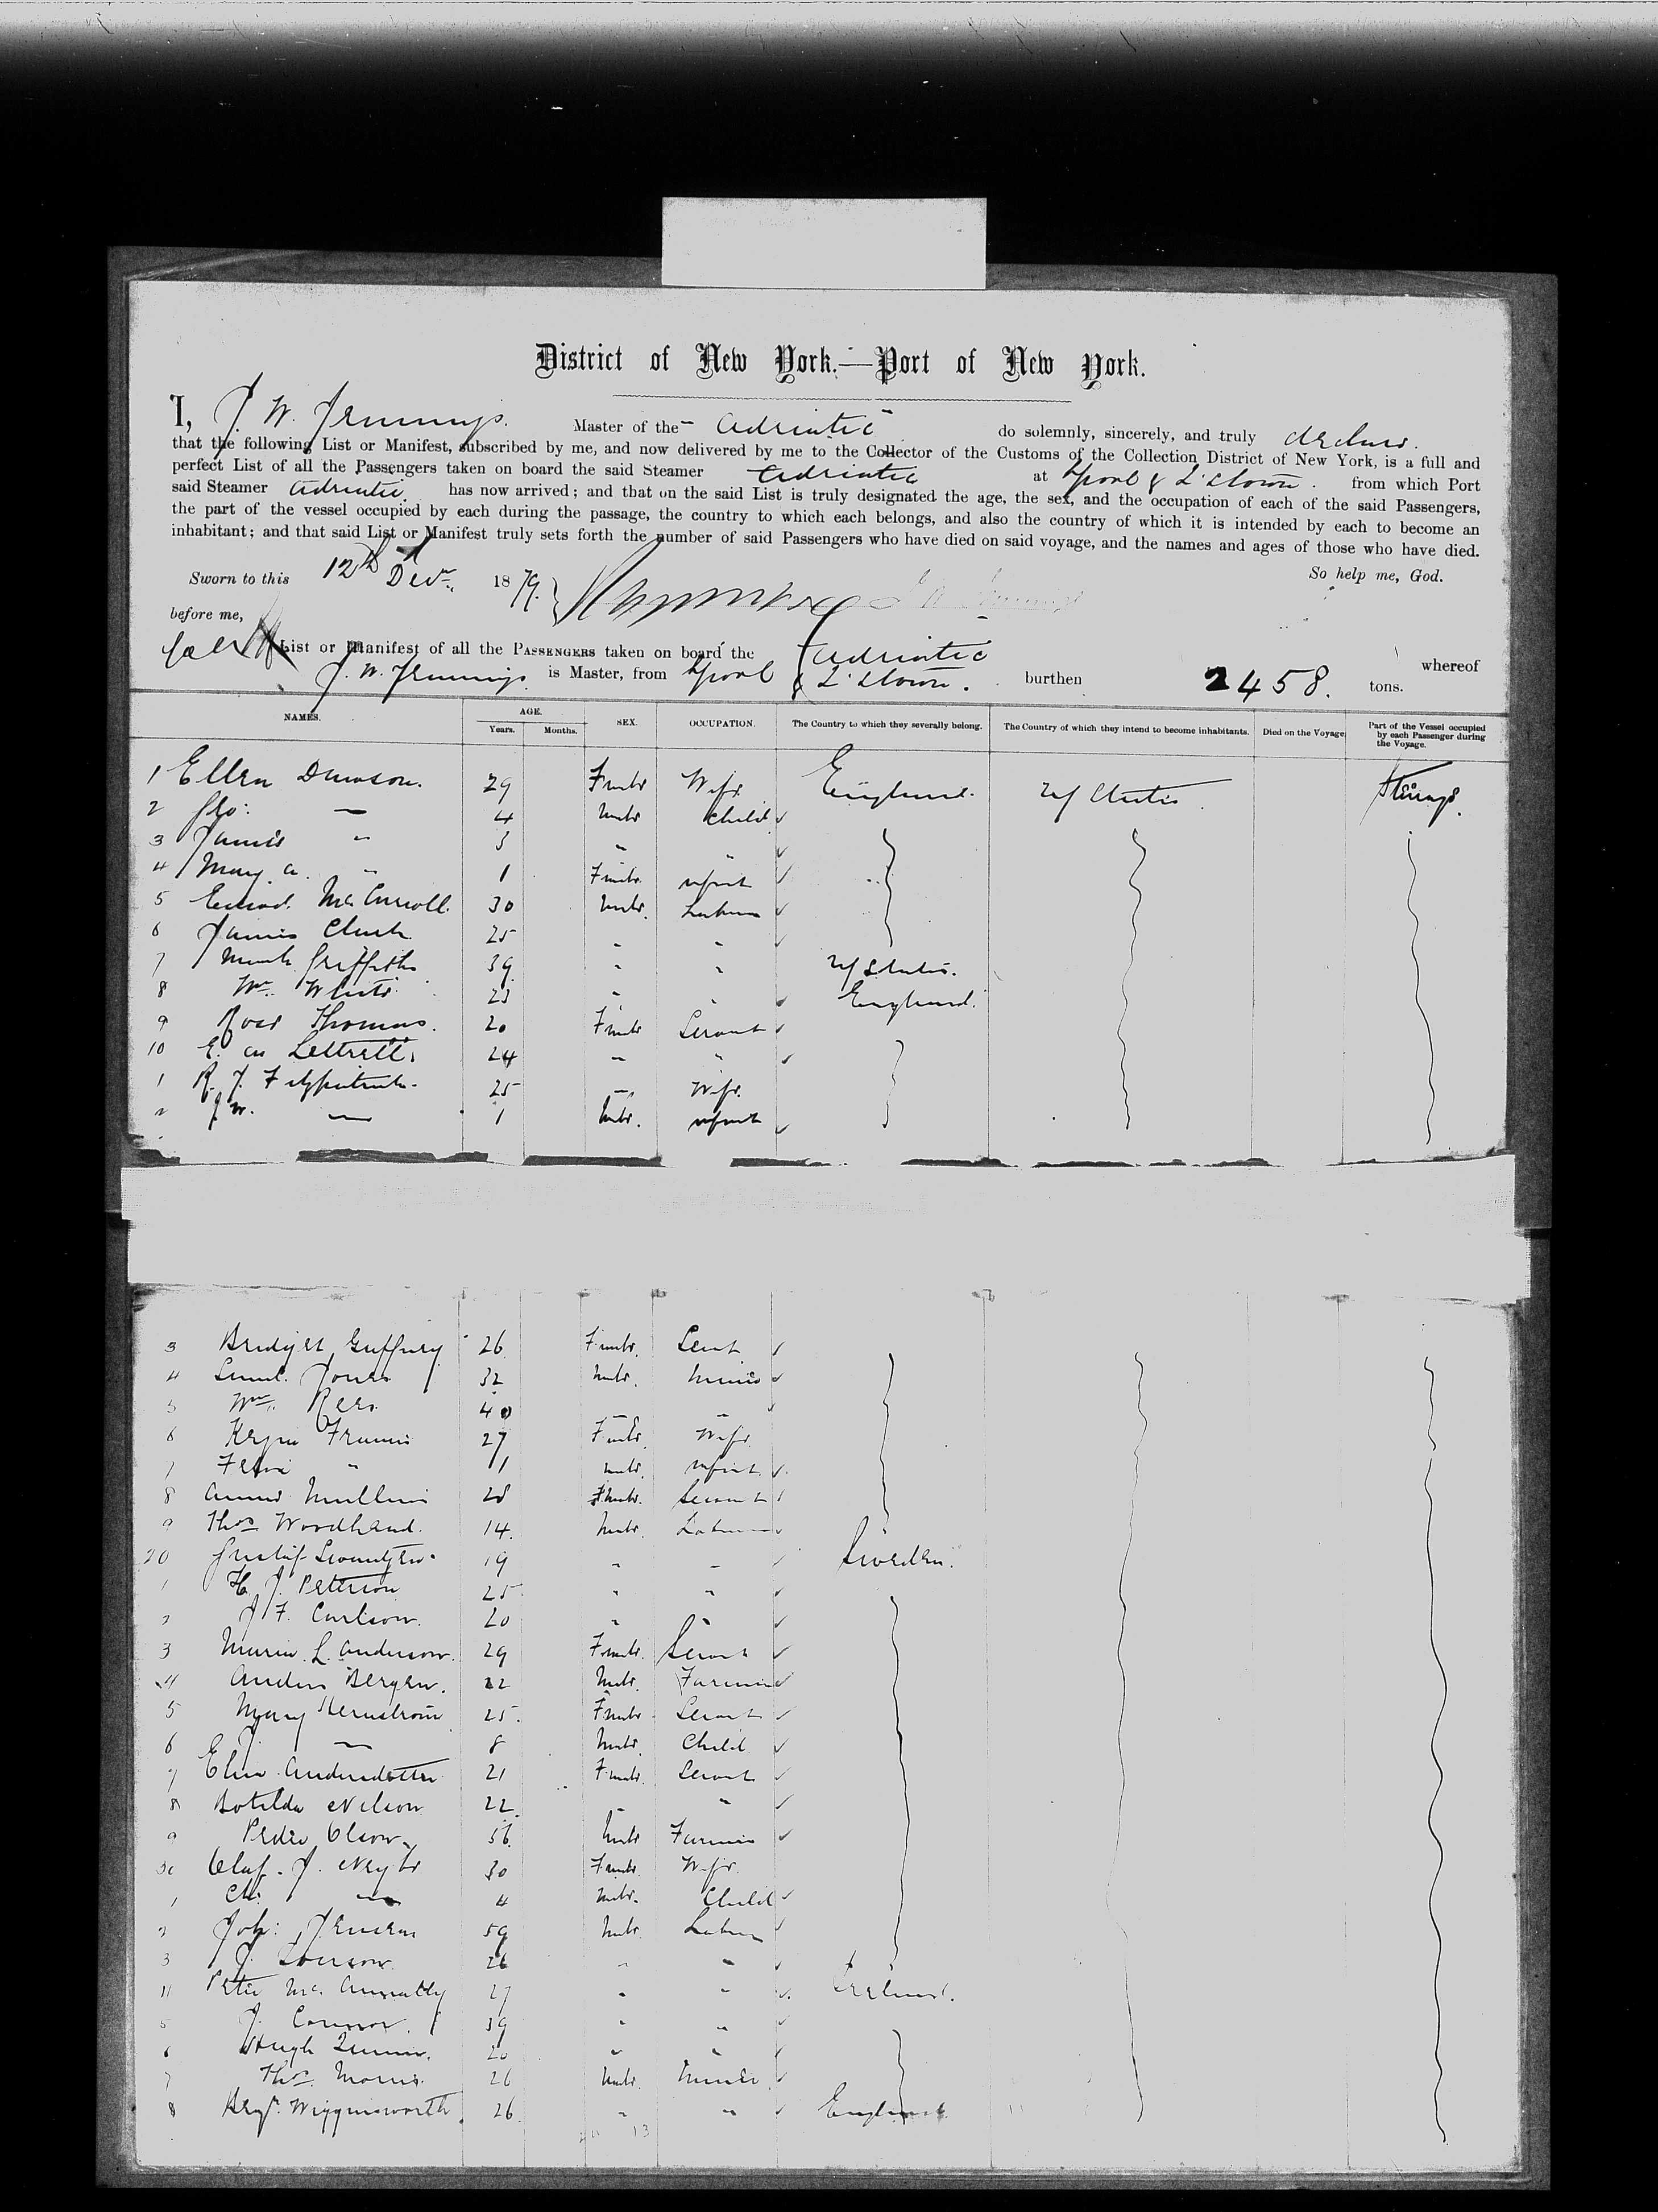 District of New York.—Port of New York.
I, J. W. Jennings. Master of the Adriatic do solemnly, sincerely, and truly declare.
that the following List or Manifest, subscribed by me, and now delivered by me to the Collector of the Customs of the Collection District of New York, is a full and
perfect List of all the Passengers taken on board the said Steamer Adriatic at L'pool & Q'town. from which Port
said Steamer Adriatic. has now arrived; and that on the said List is truly designated the age, the sex, and the occupation of each of the said Passengers,
the part of the vessel occupied by each during the passage, the country to which each belongs, and also the country of which it is intended by each to become an
inhabitant; and that said List or Manifest truly sets forth the number of said Passengers who have died on said voyage, and the names and ages of those who have died.
Sworn to this 12th Decr. 1879. So help me, God.
before me,
List or Manifest of all the PASSENGERS taken on board the Adriatic whereof
J. W. Jennings. is Master, from L'pool & Q'town. burthen 2458. tons.
NAMES. AGE. SEX. OCCUPATION. The Country to which they severally belong. The Country of which they intend to become inhabitants. Died on the Voyage. Part of the Vessel occupied by each Passenger during the Voyage.
Years. Months.
1 Ellen Dawson. 29 Female Wife England. U States. Steerage.
2 Geo: — 4 Male Child
3 James " 3 " "
4 Mary A. " 1 Female Infant
5 Edwd. McCarroll. 30 Male. Laborer
6 James Clark 25 " "
7 Mark Griffiths 39 " " U States.
8 Wm. White. 23 " " England.
9 Rose Thomas. 20 Female Servant
10 E. A. 24 " "
1 R. J. Fitzpatrick. 25 " Wife.
2 J. W. — 1 Male. Infant
3 Bridget 26 Female. Servt
4 Saml. Jones 32 Male. Miner
5 Wm. Rees. 40 " "
6 Francis 27 Female. Wife
7 " 1 Male. Infant.
8 Mullins 28 Female. Servant
9 Thos Woodhead. 14. Male. Laborer
20 Gustaf 19 " " Sweden.
1 H. J. Peterson 25 " "
2 J. F. Carlson. 20 " "
3 Maria L. Anderson. 29 Female. Servant
4 Anders Bergen. 22 Male. Farmer
5 Mary Hernstrom 25. Female Servant
6 J. — 8 Male. Child
7 Andersdotter 21 Female. Servant
8 Botilda Nelson. 22. " "
9 Peder Olson. 56. Male Farmer
30 Olaf. J. 30 Female. Wife.
1 — 4 Male. Child
2 Joh: Jensen 59 Male Laborer
3 J. 26 " "
4 Peter Mc. 27 " " Ireland.
5 J. Connor. 39 " "
6 Hugh Quinn. 20 " "
7 Thos. Morris. 26 Male. Miner.
8 Benjn. Wigginsworth. 26. " " England